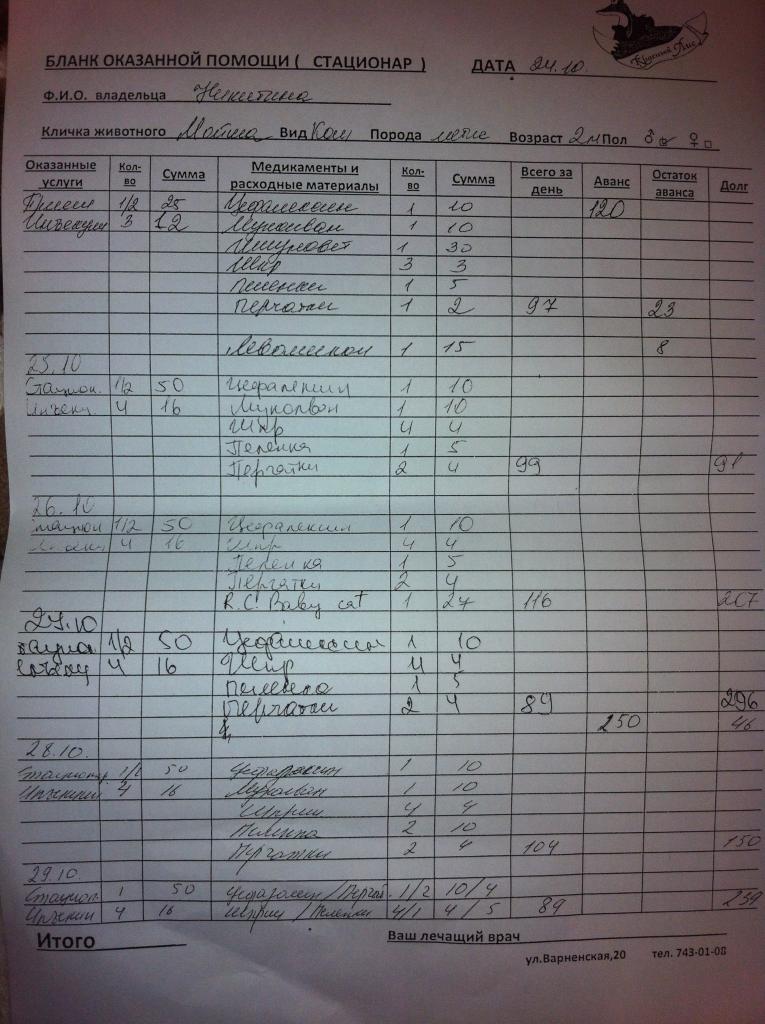 Круглый Лис
БЛАНК ОКАЗАННОЙ ПОМОЩИ ( СТАЦИОНАР ) ДАТА 24.10.
Ф.И.О. владельца Никитина
Кличка животного Вид Кош Порода метис Возраст 2м Пол ♂ ♀
Оказанные услуги Кол-во Сумма Медикаменты и расходные материалы Кол-во Сумма Всего за день Аванс Остаток аванса Долг
1/2 25 1 10 120
Инъекции 3 12 Муколван 1 10
Имуновет 1 30
Шпр 3 3
Пеленки 1 5
Перчатки 1 2 97 23
1 15 8
25.10
Стацион. 1/2 50 Цефалексин 1 10
Инъекц. 4 16 Муколван 1 10
Шпр 4 4
Пеленка 1 5
Перчатки 2 4 99 91
26.10
1/2 50 Цефалексин 1 10
4 16 Шпр 4 4
Пеленка 1 5
Перчатки 2 4
R.C. Baby cat 1 27 116 207
27.10
1/2 50 1 10
4 16 Шпр 4 4
пеленка 1 5
Перчатки 2 4 89 296
250 46
28.10.
Стационар 1/2 50 1 10
Инъекции 4 16 Муколван 1 10
Шприц 4 4
Пеленка 2 10
Перчатки 2 4 104 150
29.10.
Стацион 1 50 Цефазолин / Перчат. 1/2 10/4
Инъекции 4 16 Шприц / Пеленки 4/1 4 / 5 89 239
Итого Ваш лечащий врач
ул.Варненская,20 тел. 743-01-08